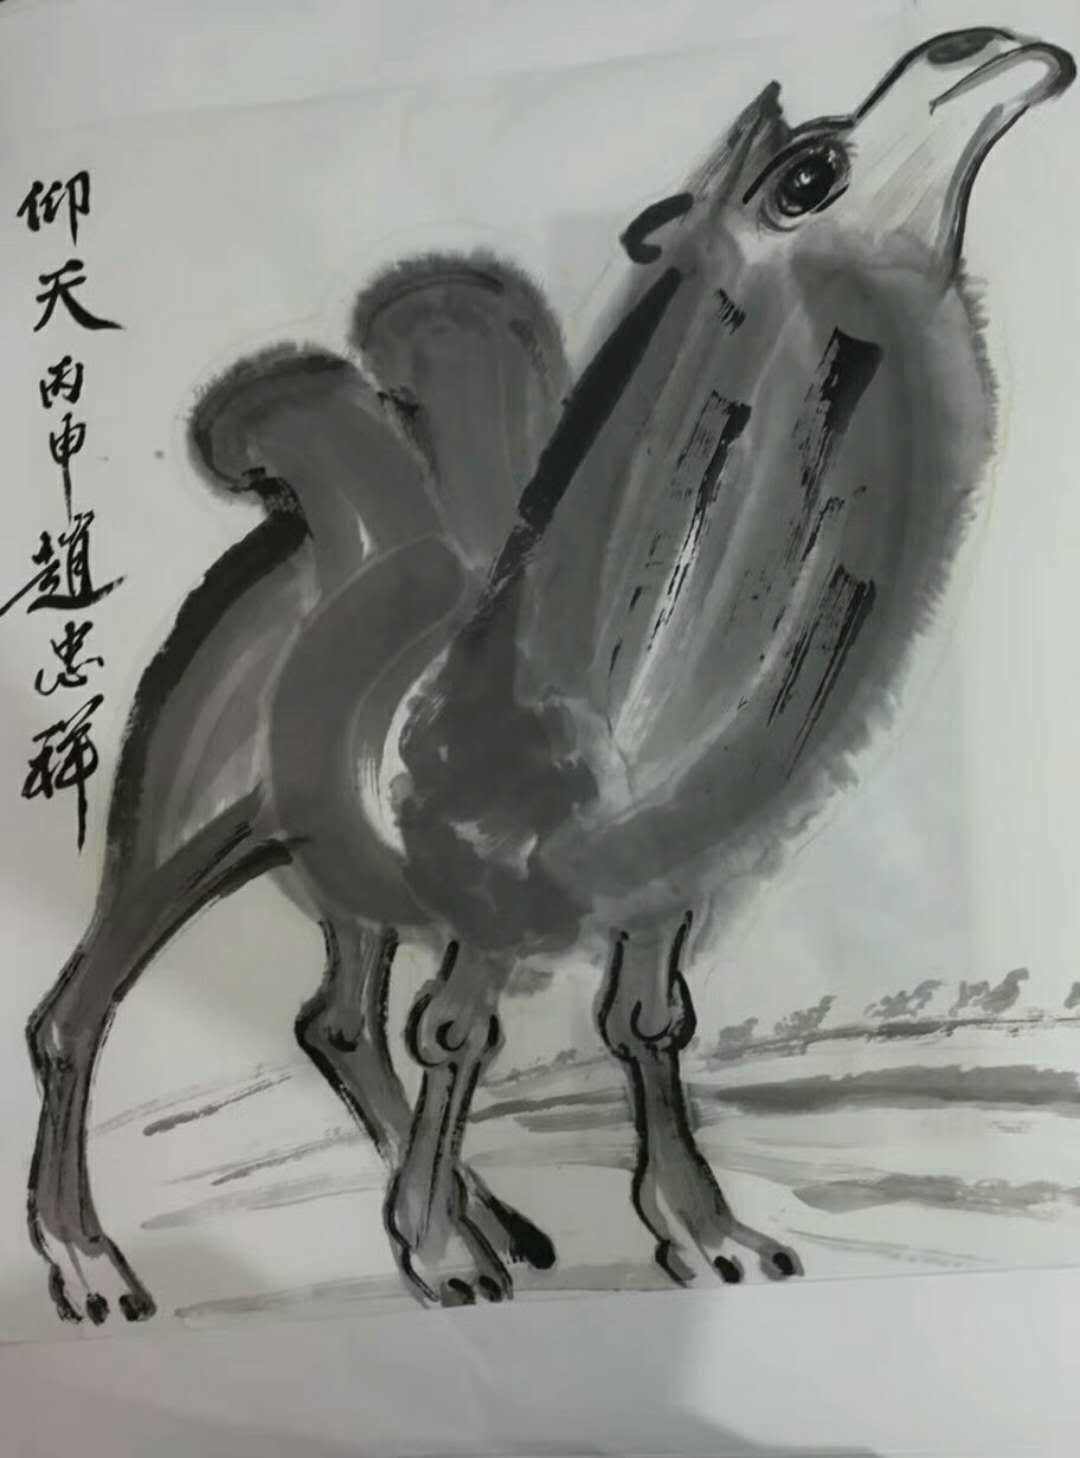 仰天丙申趙忠祥